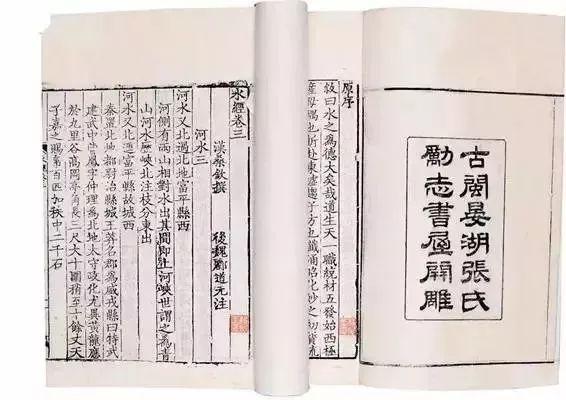 古閩晏湖張氏
勵志書屋開雕
原序
敘曰水之為德大矣哉道生天一職統材五發始西極
水經卷三
漢桑欽撰 後魏酈道元注
河水三
河水又北過北地富平縣西
河側有兩山相對水出其間即上河峽世謂之為青
山河水歷峽北注枝分東出
河水又北逕富平縣故城西
秦置北地都尉治縣城王莽名郡為威戎縣曰特武
建武中曹鳳字仲理為北地太守政化尤異黃龍應
於九里谷高岡亭角長三尺大十圍梢至十餘丈天
子嘉之賜帛百匹加秩中二千石